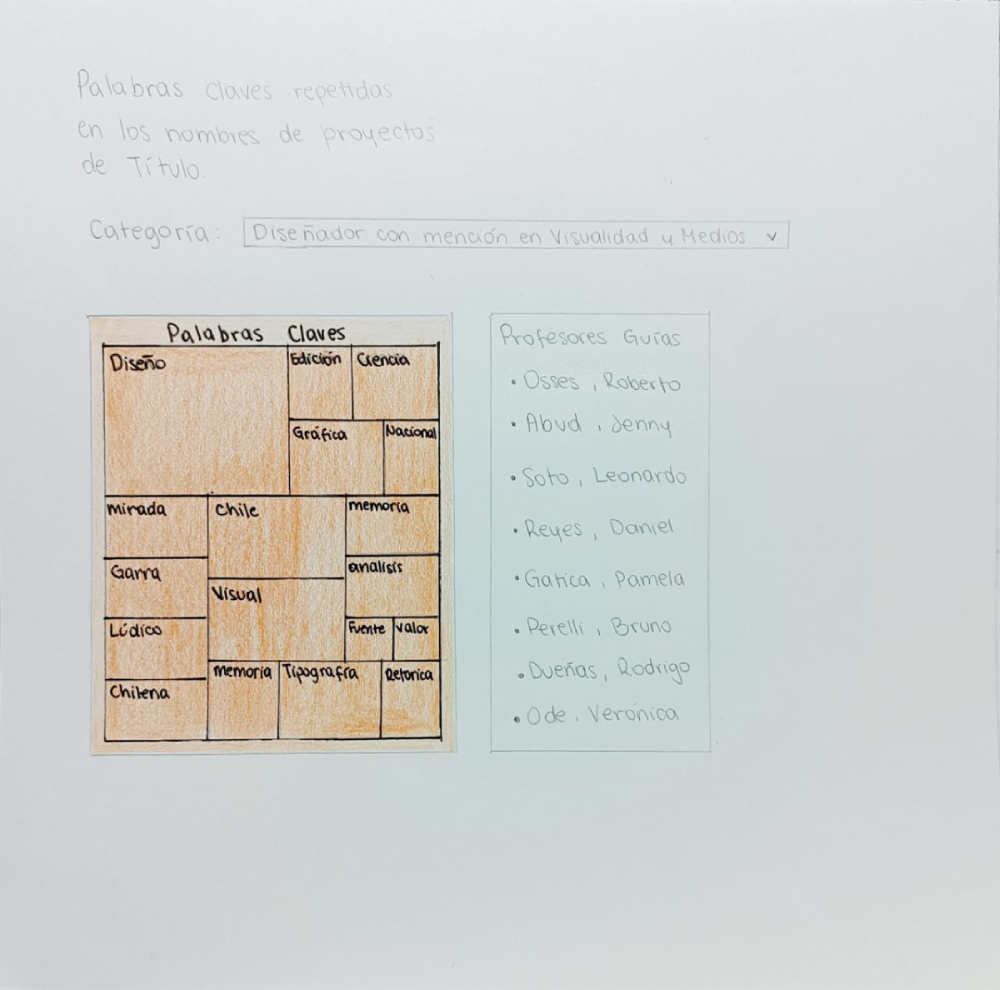 Palabras claves repetidas
en los nombres de proyectos
de Título.
Categoría: Diseñador con mención en Visualidad y Medios v
Palabras Claves
Diseño
Edición
Ciencia
Gráfica
Nacional
mirada
Chile
memoria
Garra
Visual
analisis
Lúdico
Fuente
Valor
Chilena
memoria
Tipografía
Retorica
Profesores Guías
• Osses, Roberto
• Abud, Jenny
• Soto, Leonardo
• Reyes, Daniel
• Gatica, Pamela
• Perelli, Bruno
• Dueñas, Rodrigo
• Ode, Verónica